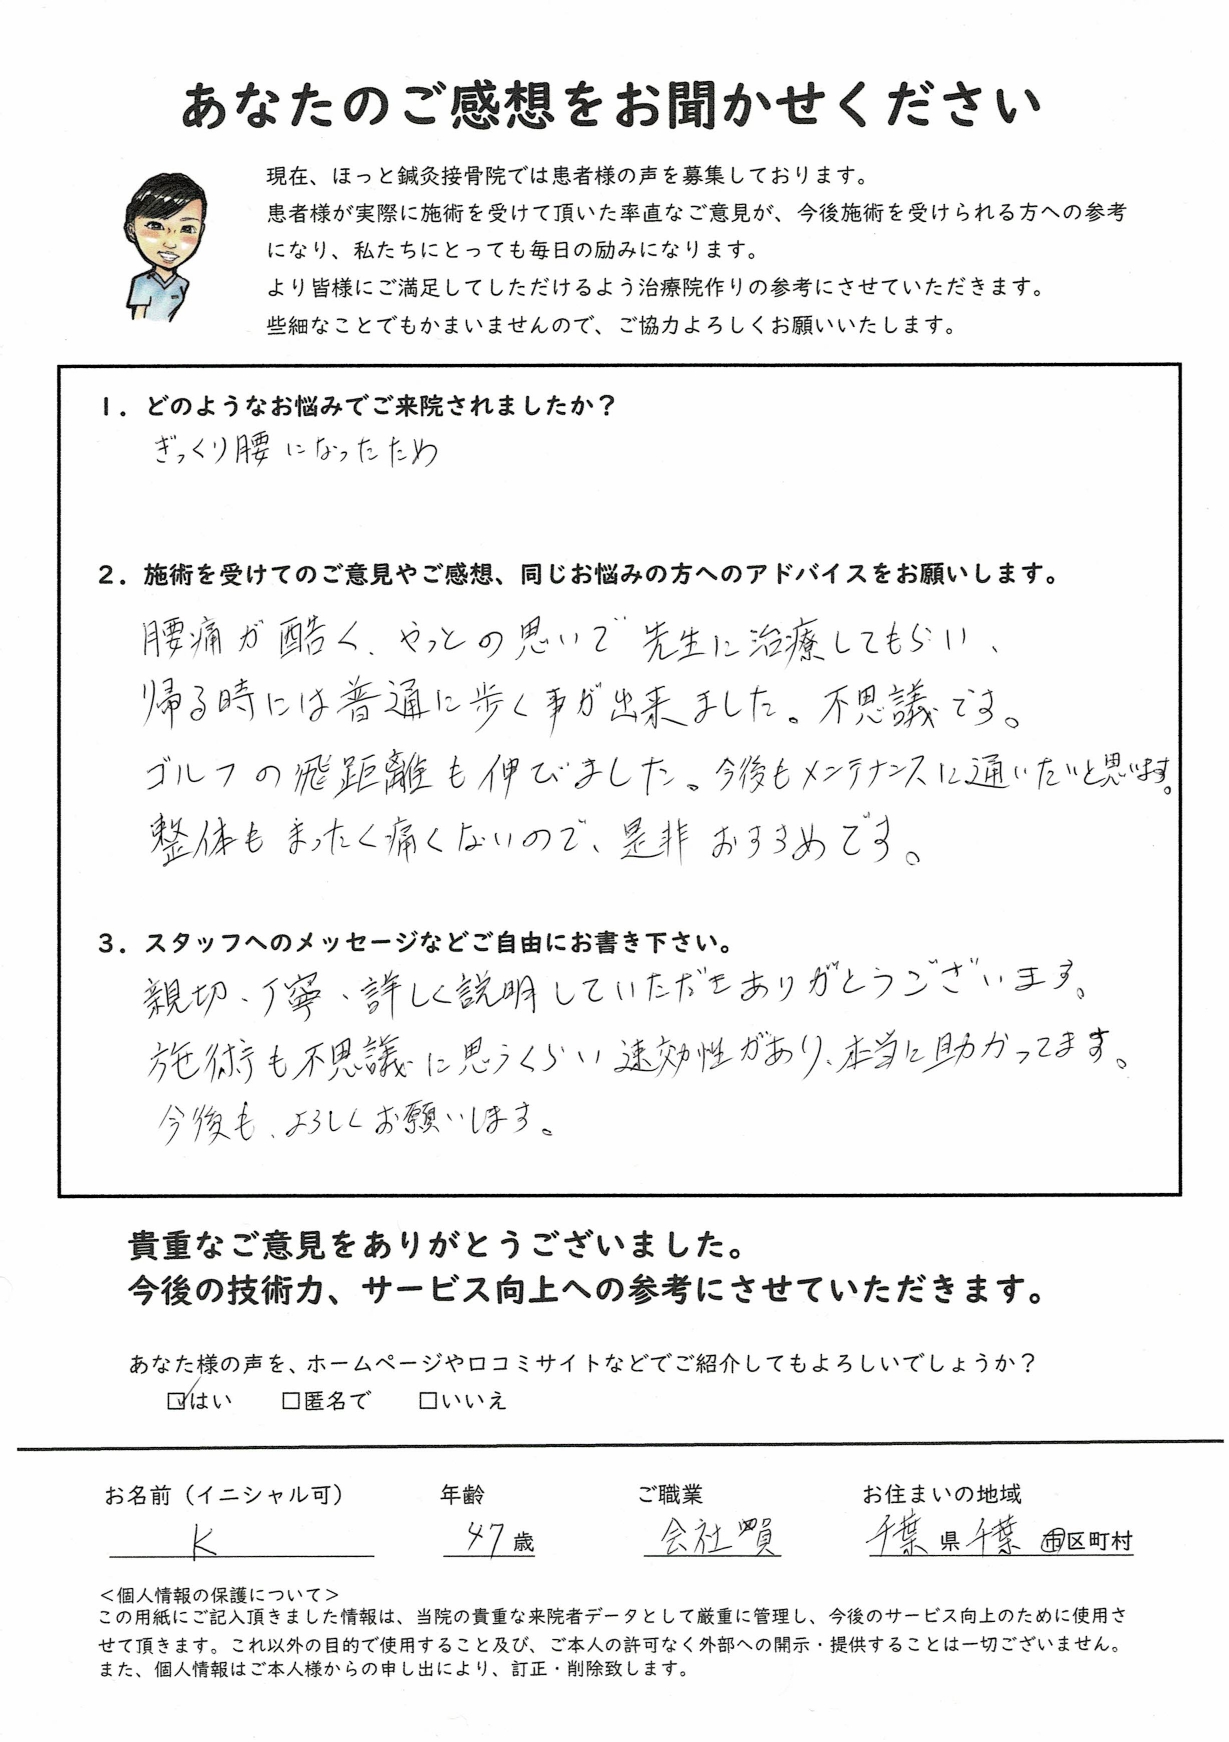 あなたのご感想をお聞かせください
現在、ほっと鍼灸接骨院では患者様の声を募集しております。
患者様が実際に施術を受けて頂いた率直なご意見が、今後施術を受けられる方への参考
になり、私たちにとっても毎日の励みになります。
より皆様にご満足してしただけるよう治療院作りの参考にさせていただきます。
些細なことでもかまいませんので、ご協力よろしくお願いいたします。
1．どのようなお悩みでご来院されましたか？
ぎっくり腰になったため
2．施術を受けてのご意見やご感想、同じお悩みの方へのアドバイスをお願いします。
腰痛が酷く、やっとの思いで先生に治療してもらい、
帰る時には普通に歩く事が出来ました。不思議です。
ゴルフの飛距離も伸びました。今後もメンテナンスに通いたいと思います。
整体もまったく痛くないので、是非おすすめです。
3．スタッフへのメッセージなどご自由にお書き下さい。
親切、丁寧、詳しく説明していただきありがとうございます。
施術も不思議に思うくらい速効性があり、本当に助かってます。
今後も、よろしくお願いします。
貴重なご意見をありがとうございました。
今後の技術力、サービス向上への参考にさせていただきます。
あなた様の声を、ホームページや口コミサイトなどでご紹介してもよろしいでしょうか？
☑はい　□匿名で　□いいえ
お名前（イニシャル可）　年齢　ご職業　お住まいの地域
K　47歳　会社員　千葉県千葉市区町村
＜個人情報の保護について＞
この用紙にご記入頂きました情報は、当院の貴重な来院者データとして厳重に管理し、今後のサービス向上のために使用さ
せて頂きます。これ以外の目的で使用すること及び、ご本人の許可なく外部への開示・提供することは一切ございません。
また、個人情報はご本人様からの申し出により、訂正・削除致します。